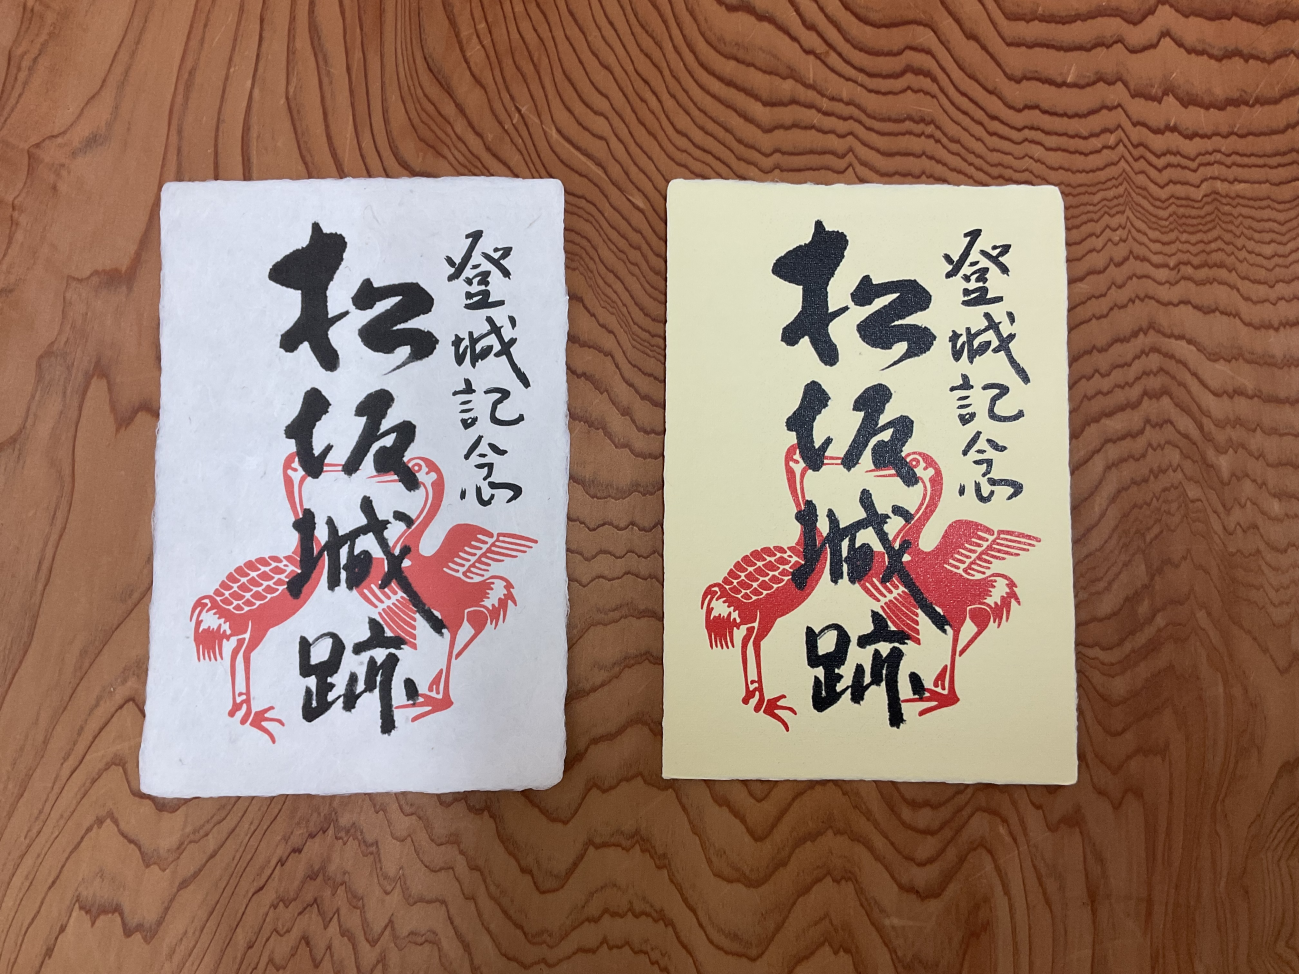 登城記念
松坂城跡
登城記念
松坂城跡